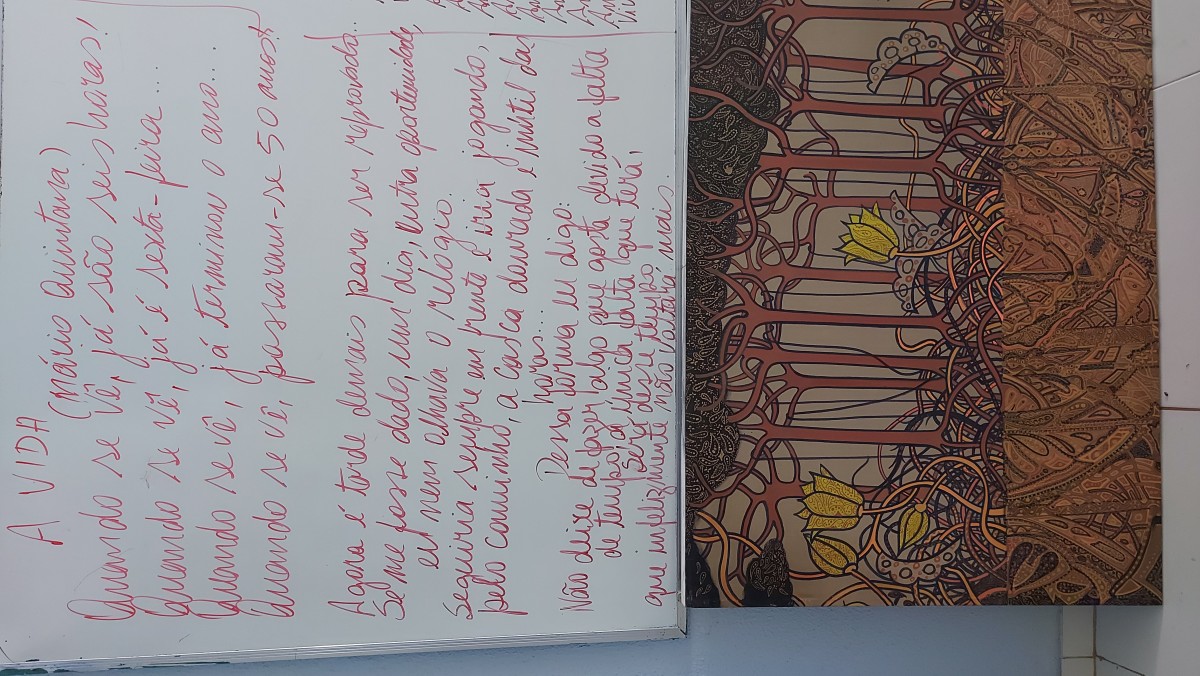 A VIDA
(Mário Quintana)
Quando se vê, já são seis horas!
Quando se vê, já é sexta-feira...
Quando se vê, já terminou o ano...
Quando se vê, passaram-se 50 anos!
Agora é tarde demais para ser reprovado...
Se me fosse dado, um dia, outra oportunidade,
eu nem olhava o relógio.
Seguiria sempre em frente e iria jogando,
pelo caminho, a casca dourada e inútil das
horas...
Dessa forma eu digo:
Não deixe de fazer algo que gosta devido a falta
de tempo, a única falta que terá,
será desse tempo
que infelizmente não voltará mais.